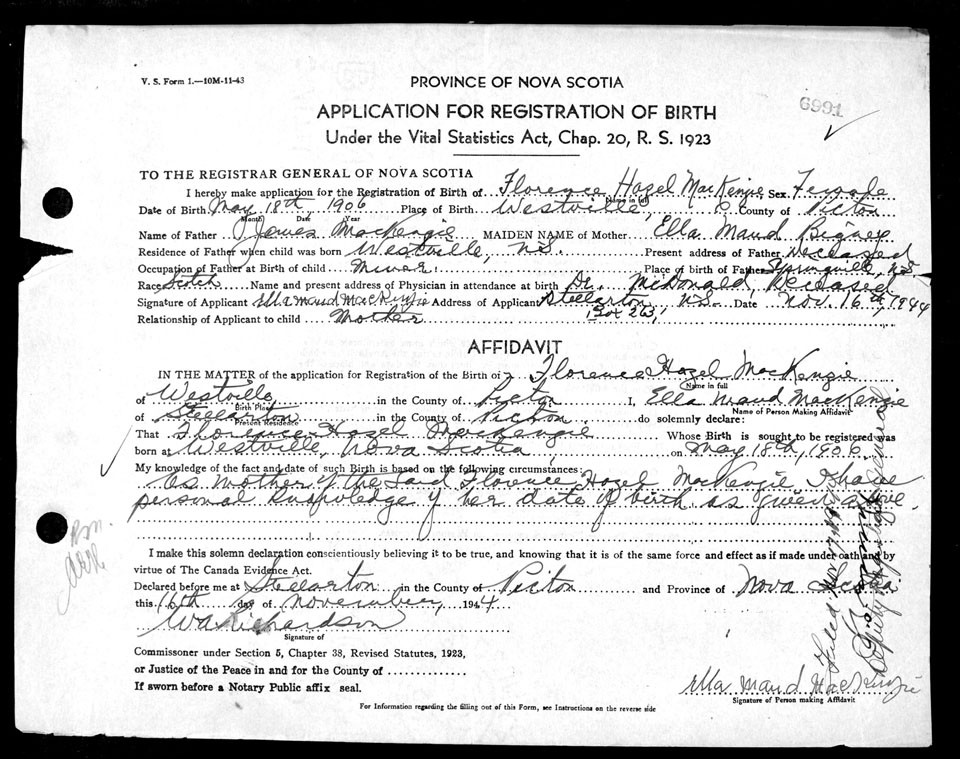 V. S. Form 1.—10M-11-43
PROVINCE OF NOVA SCOTIA
6991
APPLICATION FOR REGISTRATION OF BIRTH
Under the Vital Statistics Act, Chap. 20, R. S. 1923
TO THE REGISTRAR GENERAL OF NOVA SCOTIA
I hereby make application for the Registration of Birth of Florence Hazel MacKenzie, Sex Female
Name in full
Date of Birth May 18th, 1906 Place of Birth Westville, County of Pictou
Month Day Year
Name of Father James MacKenzie MAIDEN NAME of Mother Ella Maud Bigney
Residence of Father when child was born Westville, N.S. Present address of Father Deceased
Occupation of Father at Birth of child Miner. Place of birth of Father Springville, N.S.
Race Scotch Name and Present address of physician in attendance at birth Dr. McDonald, Deceased
Signature of Applicant Ella maud MacKinzie Address of Applicant Stellarton, N.S. Date Nov. 16th, 1944
Relationship of Applicant to child Mother Box 263,
AFFIDAVIT
IN THE MATTER of the application for Registration of the Birth of Florence Hazel MacKenzie
Name in full
of Westville, in the County of Pictou I, Ella Maud MacKenzie
Birth Place
Name of Person Making Affidavit
of Stellarton in the County of Pictou do solemnly declare:
Present Residence
That Florence Hazel MacKenzie Whose Birth is sought to be registered was
born at Westville, Nova Scotia on May 18th, 1906.
My knowledge of the fact and date of such Birth is based on the following circumstances:
As mother of the said Florence Hazel MacKenzie I have
personal knowledge of her date of birth as given above.
I make this solemn declaration conscientiously believing it to be true, and knowing that it is of the same force and effect as if made under oath and by
virtue of The Canada Evidence Act.
Declared before me at Stellarton in the County of Pictou and Province of Nova Scotia
this 16th day of November, 1944
W A Richardson
Signature of
Commissoner under Section 5, Chapter 38, Revised Statutes, 1923,
or Justice of the Peace in and for the County of
If sworn before a Notary Public affix seal.
Ella Maud MacKinzie
Signature of Person making Affidavit
For Information regarding the filling out of this Form, see Instructions on the reverse side
Filed Nov
Deputy Registrar General